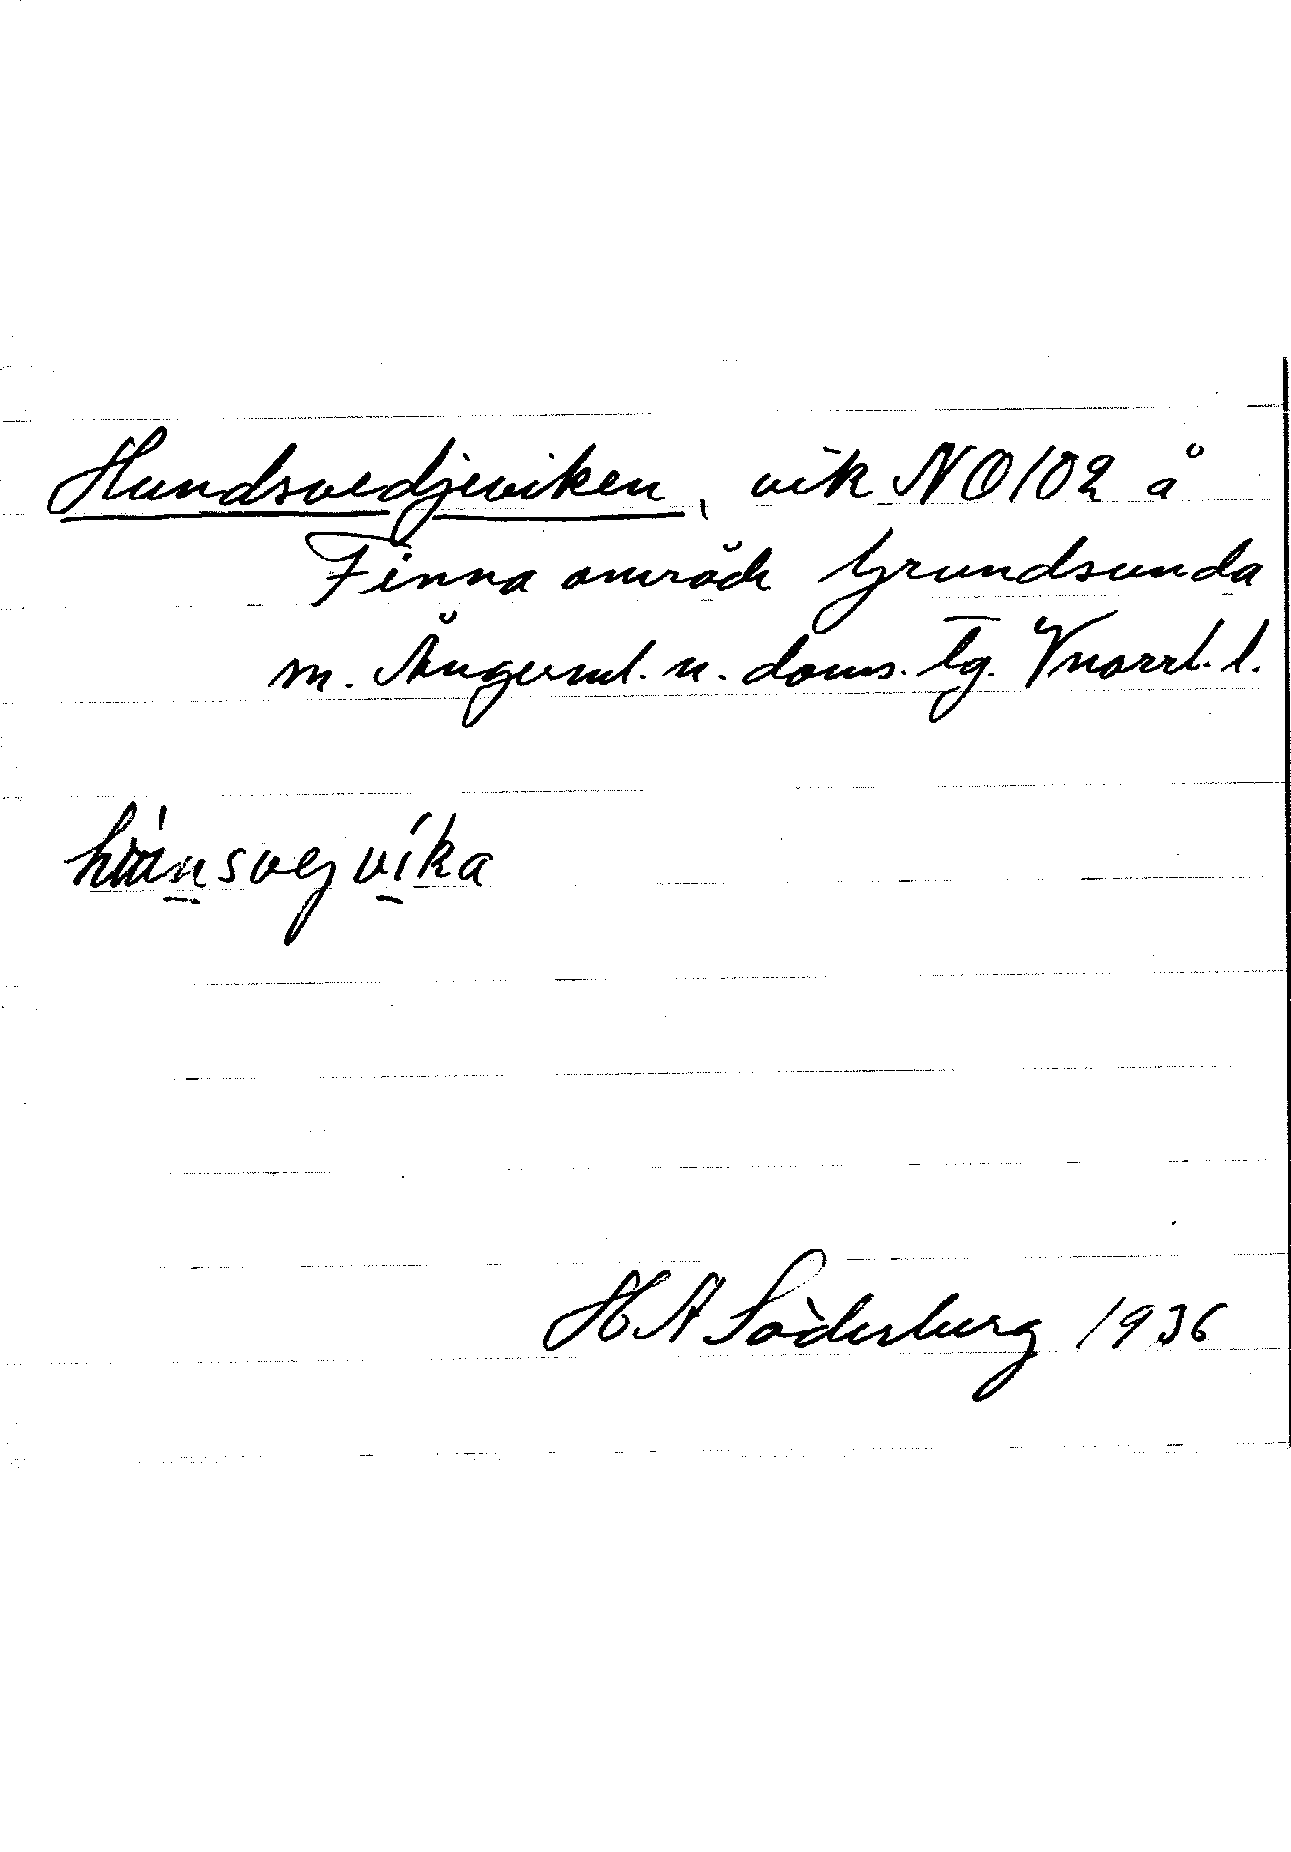 Hundsvedjeviken, vik NO102 å
Finna område Grundsunda
m. Ångerml. n. doms. tg. Vnorrl. l.
svejvíka
H A Söderberg 1936